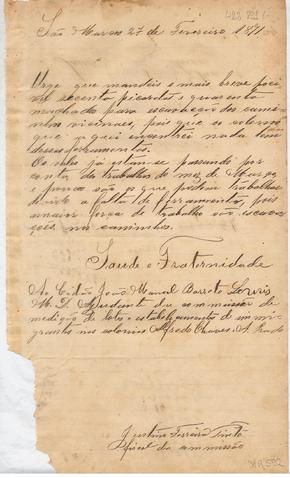 São Marcos 27 de Fevereiro 1891
Urge que mandeis o mais breve possi
vel secenta picarêtas e quarenta
machados para escavações dos cami
nhos vicinaes, pois que os colonos
que aqui encontrei nada têm
dessas ferramentas.
Os mêses já estam se passando por
conta do trabalhos do mez de Março
e poucos são os que podem trabalhar
devido a falta de ferramentas, pois
maior força de trabalho são escava
ções nos caminhos.
Saude e Fraternidade
Ao Cidão João Manoel Barreto
M. D. Ajudante da commissão de
medição de lotes e estabelecimento de immi
grantes nas colonias Alfredo Chaves, A. Prado
Ferreira Pinto
fiscal da commissão